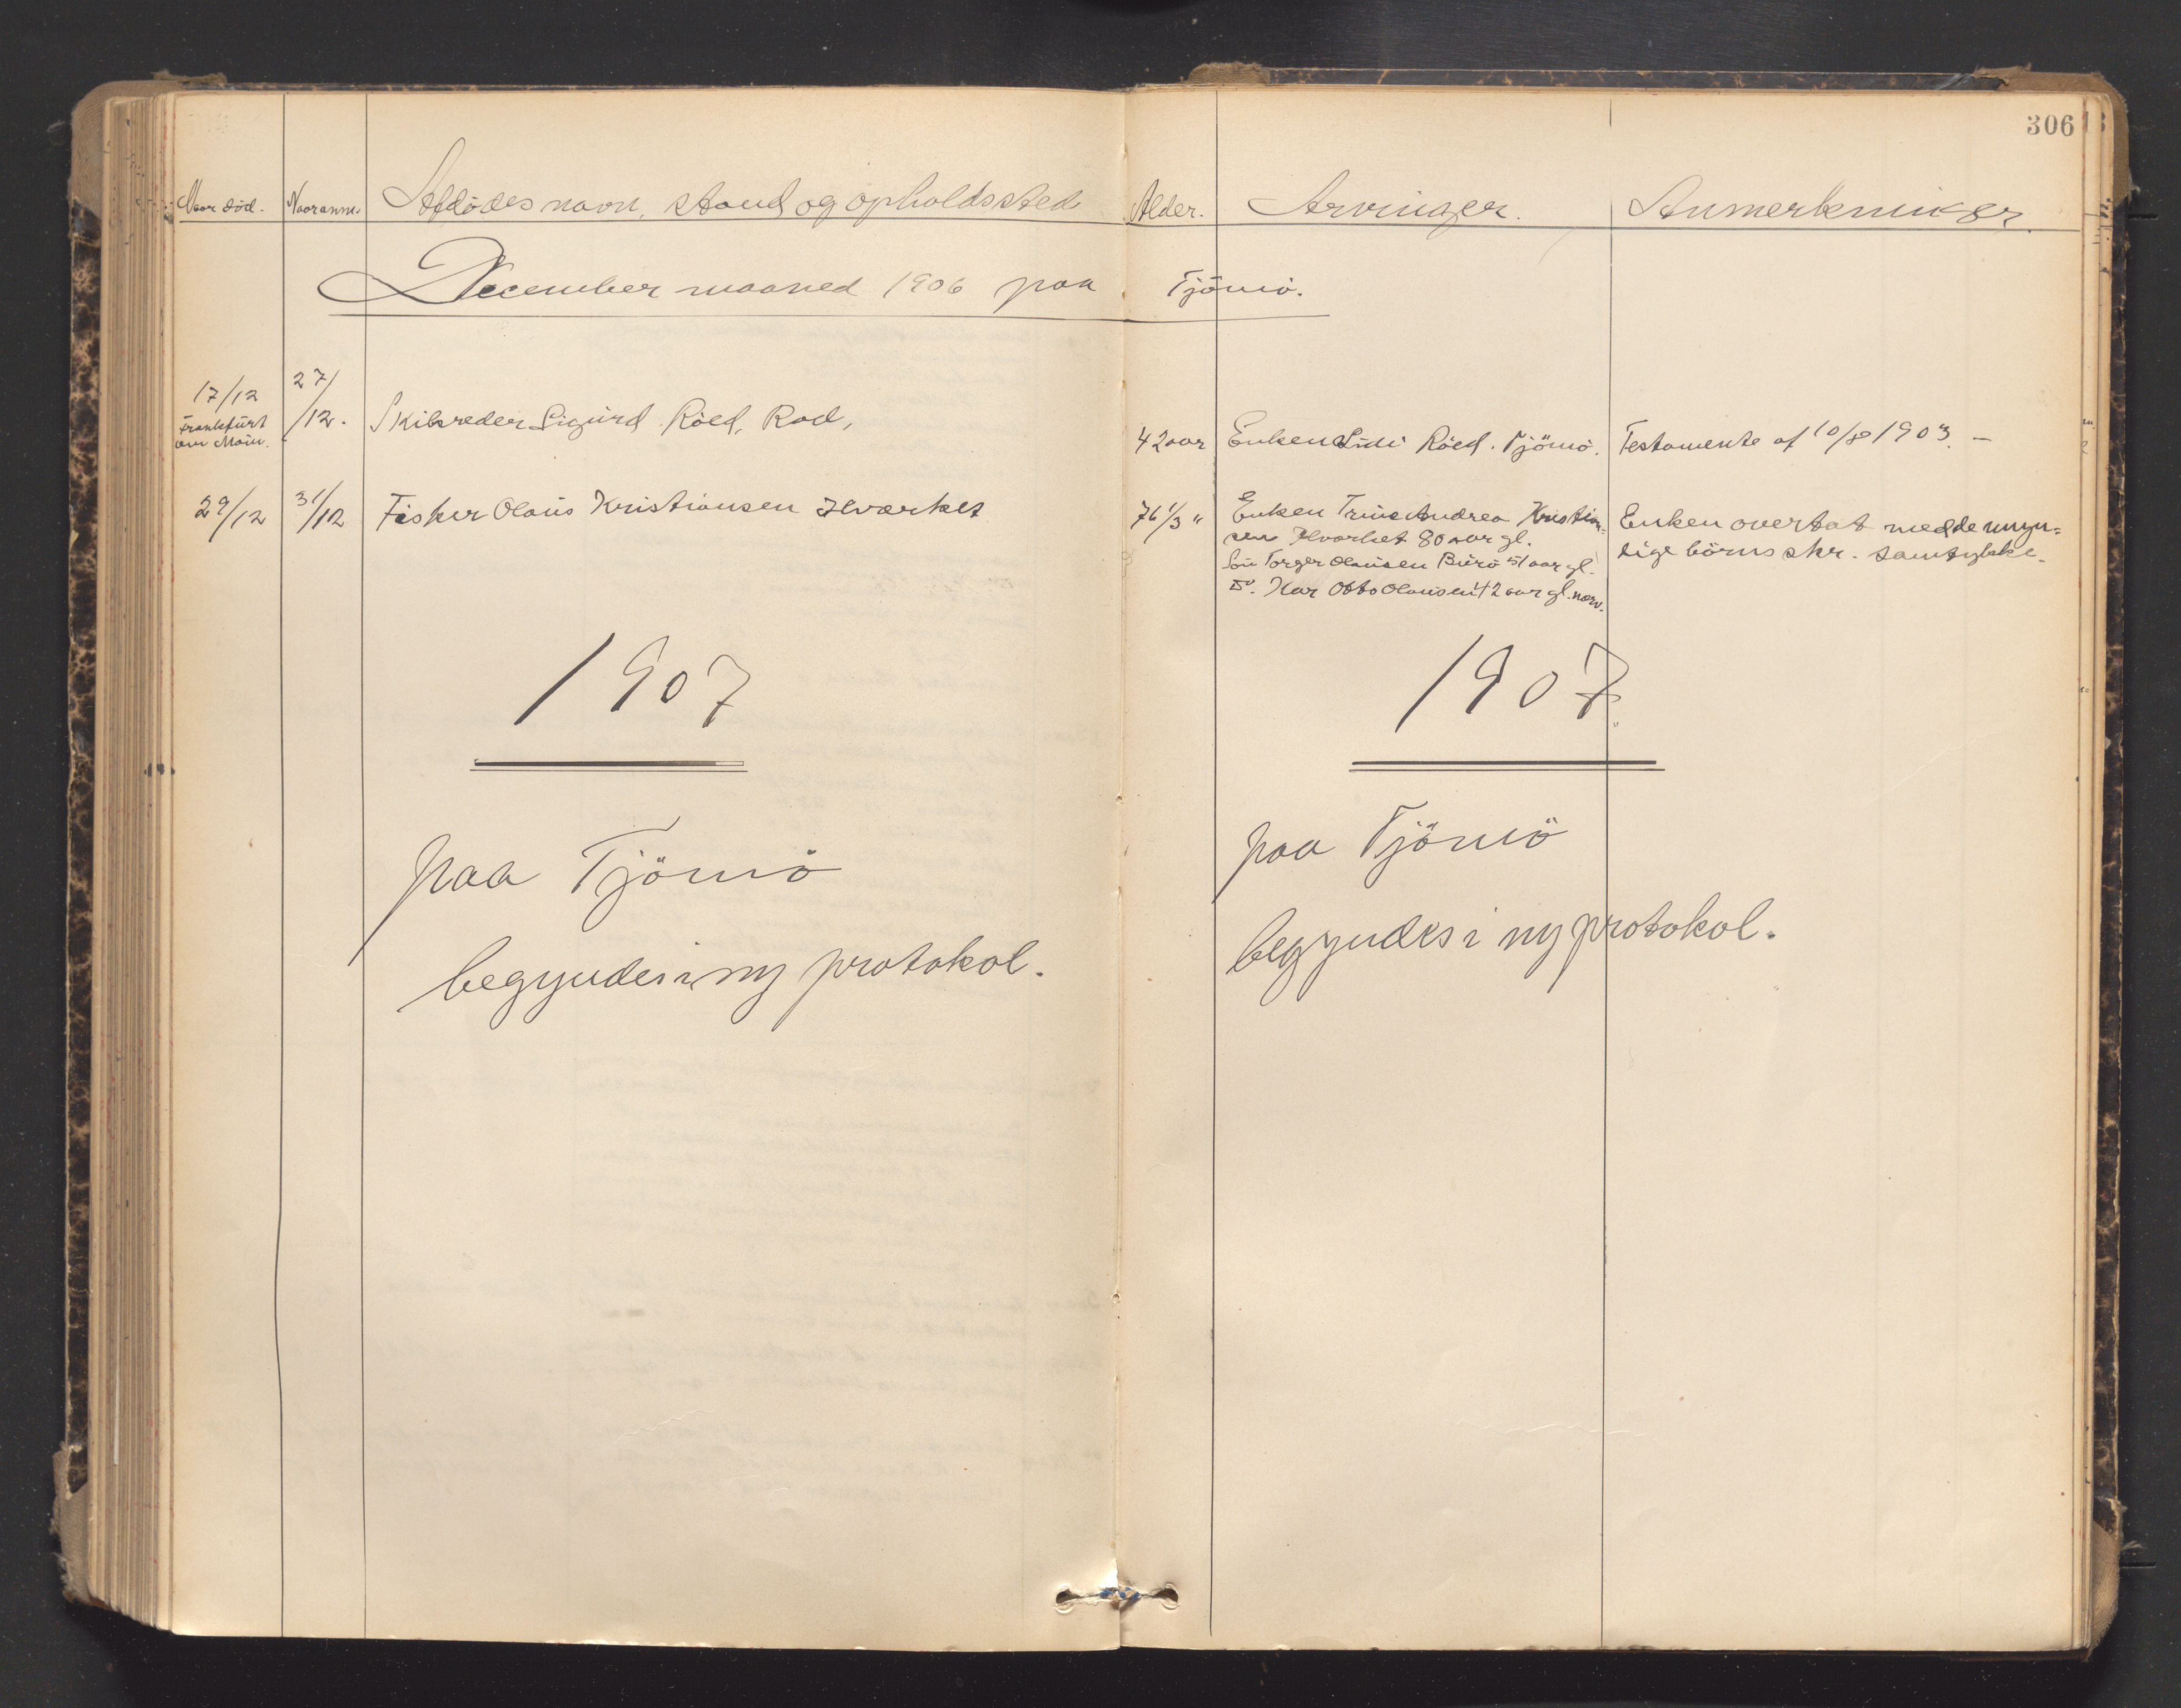 306
Naar död. Naar anm. Afdødes navn, stand og opholdssted Alder. Arvinger. Anmerkninger.
December maaned 1906 paa Tjömö.
17/12 Frankfurt am Main. 27/12. Skibsreder Sigurd Röed, Rød, 42 aar Enken Lilli Röed. Tjömö. Testamente af 10/8 1903. —
29/12 31/12 Fisker Olaus Kristiansen Hvarket 76 1/3 "
Enken Trine Andrea Kristian=
sen Hvarket 80 aar gl.
Sön Torger Olausen Burö 51 aar gl.
Do. Kar Otto Olausen 42 aar gl. nærv.
Enken overtat med de myn=
dige börns skr. samtykke.
1907
paa Tjömö
begyndes i ny protokol.
1907.
paa Tjömö
begyndes i ny protokol.